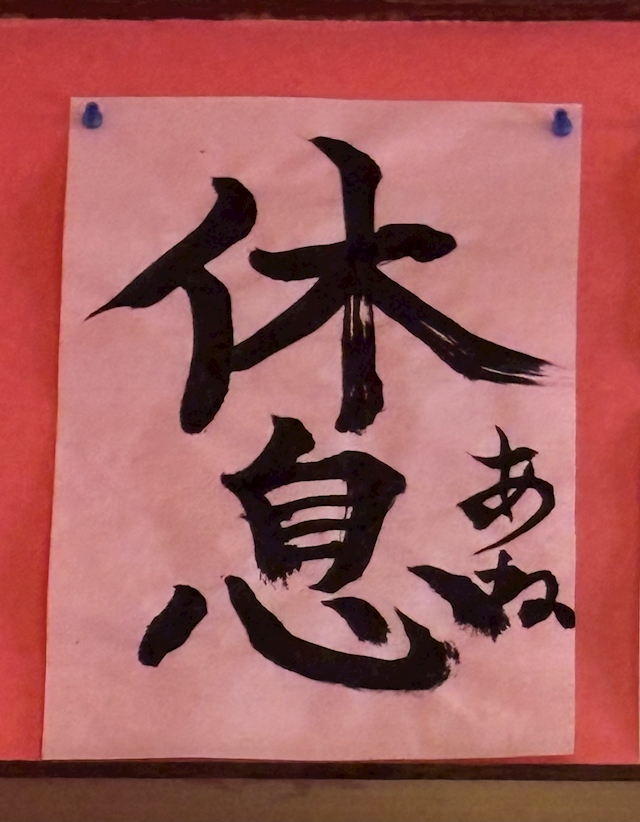 休息
あね